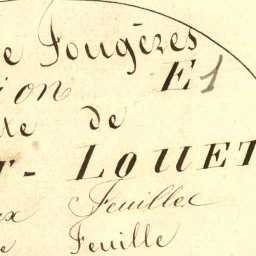 e Fougères
ion E1
te de
T- LOUET
ux Feuilles
e Feuille